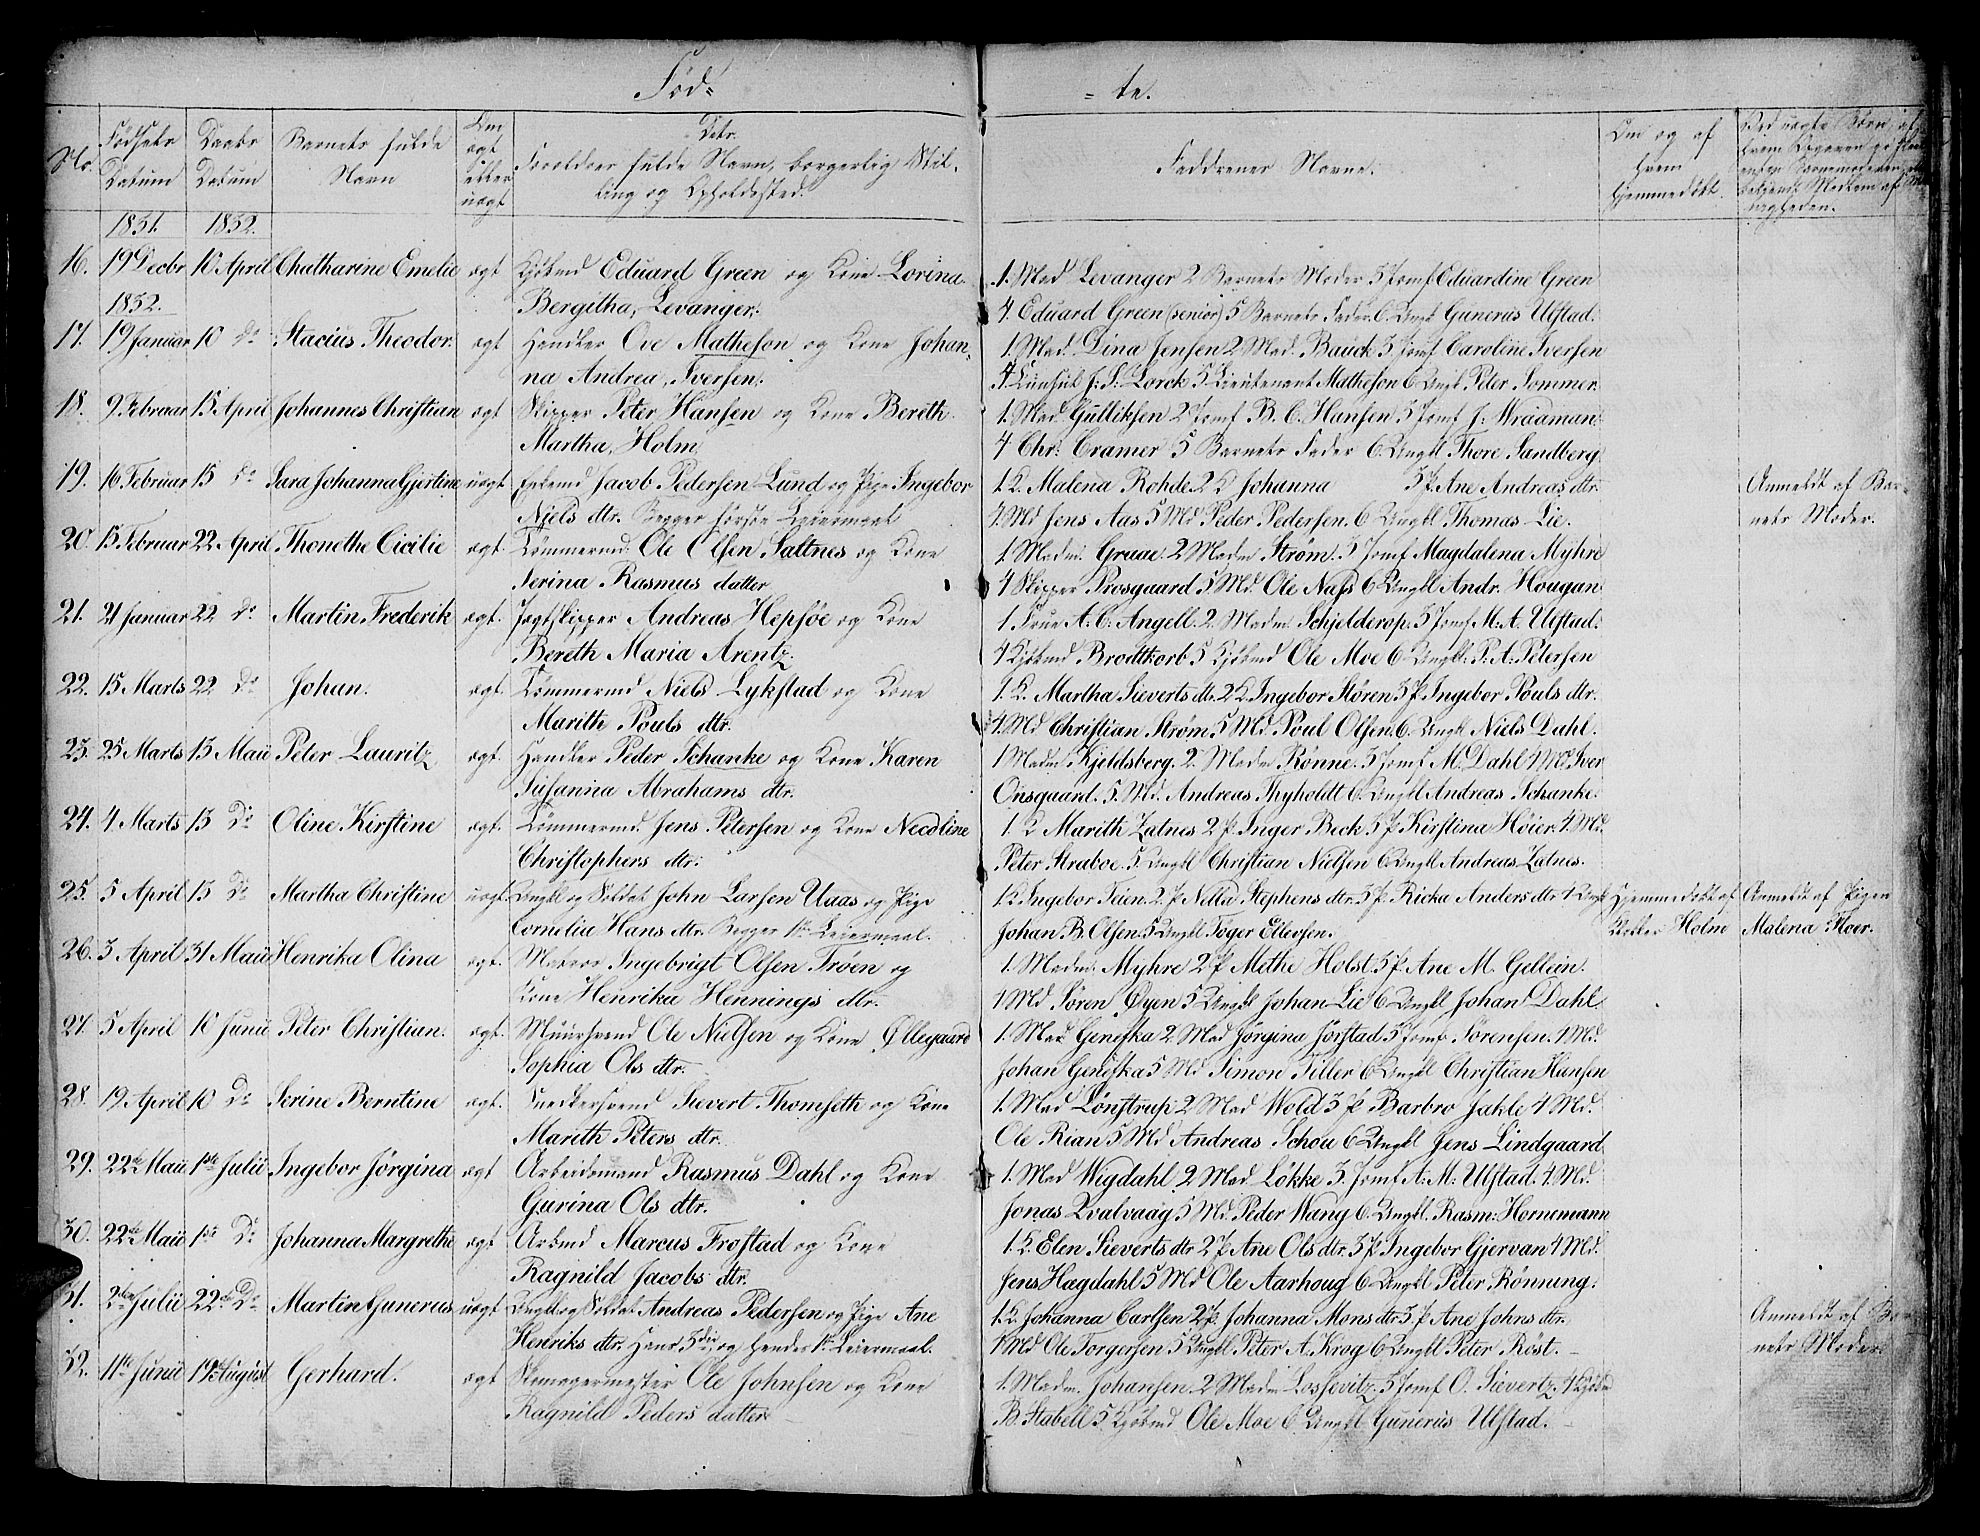 Fød=
=te.
No.
Fødsels Datum
Daabs Datum
Barnets fulde Navn
Om ægt eller uægt
Forældres fulde Navn, borgerlig Stilling og Opholdssted.
Faddrenes Navne.
Om og af hvem hjemmedøbt.
1831. 1832.
16. 19 Decbr 10 April Chatharine Emelie ægt Kjøbmd Eduard Green og Kone Lorina 1. Mad Levanger 2 Barnets Moder 3 Jomf Eduardine Green
1832. Bergitha, Levanger. 4. Eduard Green (senior) 5 Barnets Fader 6. Ungk Gunerus Ulstad.
17. 19 Januar 10 Do Stacius Theodor. ægt Handler Ove Matheson og Kone Johan= 1. Mad. Lina Jensen 2 Mad. Bauck 3 Jomf Caroline Iversen
na Andrea, Iversen. 4 Consul J. S. Lorck 5 Lieutenant Matheson 6 Ungk Peter Sommer.
18. 9 Februar 15 April Johannes Christian ægt Skipper Peter Hansen og Kone Bereth 1. Mad Gulliksen 2 Jomf B. C. Hansen 3 Jomf J. Wraaman.
Martha, Holm 4 Chr: Cramer 5 Barnets Fader 6. Ungkl Thore Sandberg.
19. 16 Februar 15 do Sara Johanna Gjertine uægt Enkemd Jacob Pedersen Lund og Pige Ingebor 1. K. Malena Rohde 2 K Johanna 3 P. Ane Andreas dtr. Anmeldt af Bar=
Niels dtr. Begges første Leiermaal 4. Md Jens Aas 5 Md Peder Pedersen. 6 Ungkl Thomas Lie. nets Moder.
20. 15 Februar 22 April Thonethe Cicilie ægt Tømmermd. Ole Olsen Saltnes og Kone 1. Madm. Gruae 2 Madm Strøm. 3 Jomf Magdalena Myhre
Nerina Rasmus datter 4 Skipper Prosgaard 5 Md. Ole Nass 6 Ungkl Andr. Hougan.
21. 21 Januar 22 do Martin Frederik ægt. Jagtskipper Andreas Hepsøe og Kone 1 Frue A. C. Angell. 2. Madm. Schjelderop. 3 Jomf M. A. Ulstad.
Bereth Maria Arentz. 4 Kjøbmd Brodtkorb 5 Kjøbmd Ole Moe 6 Ungkl. P. A. Petersen
22. 15 Marts 22 do Johan. ægt. Tømmermd Niels Lykstad og Kone 1. K. Martha Sieverts dtr. 2 K. Ingebor Støren 3 P. Ingebor Pouls dtr.
Marith Pouls dtr. 4. Md Christian Strøm 5 Md Poul Olsen. 6. Ungkl Niels Dahl.
23. 25 Marts 13 Maii Peter Lauritz ægt. Handler Peder Schanke og Kone Karen 1 Madm Kjeldsberg. 2. Madm Rønne. 3 Jomf M. Dahl 4 Md. Iver
Susanna Abrahams dtr. Onsgaard. 5. Md. Andreas Thyholdt 6. Ungkl Andreas Schanke.
24. 4 Marts 13 Do Oline Kirstine ægt. Tømmermd. Jens Petersen og Kone Nicoline 1. K Marith Latnes 2 P. Inger Beck 3 P. Kirstina Høier. 4. Md.
Christophers dtr. Peter Straboe. 5. Ungkl Christian Nielsen 6 Ungkl Andreas Latnes.
25. 5 April 13 Do Martha Christine uægt Ungkl og Soldat John Larsen Uaas og Pige 1 K Ingebor Teien. 2. P. Nella Stephens dtr. 3 P. Ricka Anders dtr 4 Ungk Hjemmedøbt af Anmeldt af Pigen
Cornelia Hans dtr. Begges 1ste Leiermaal. Johan B. Olsen. 5 Ungkl Toger Ellevsen. Klokker Holm Malena Floer.
26. 3 April 31 Maii Henrika Olina ægt. Matros Ingebrigt Olsen Trøen og 1. Madm. Myhre 2 P. Methe Holst. 3 P. Ane M. Gellein.
Kone Henrika Hennings dtr. 4 Md Søren Øyen 5 Ungkl Johan Lie 6 Ungkl Johan Dahl.
27. 5 April 10 Junii Peter Christian. ægt. Muursvend Ole Nielsen og Kone Øllegaard 1. Mad Genefka 2. Mad Jørgina Jørstad 3 Jomf Sørensen. 4 Md.
Sophia Ols dtr. Johan Genefka 5 Md Simon Tiller 6 Ungkl Christian Hansen
28. 19 April 10 Do Serine Berntine ægt. Snedkersvend Sievert Thomseth og Kone 1. Mad Lønstrup 2 Mad Wold 3 P Barbro Jahle 4 Md.
Marith Peters dtr. Ole Rian 5 Md Andreas Schou 6 Ungkl Jens Lindgaard
29. 22de Maii 1ste Julii Ingebor Jørgina ægt Arbeidsmand Rasmus Dahl og Kone 1. Mad Wigdahl. 2 Mad Løkke 3. Jomf A: M: Ulstad. 4. Md.
Gurina Ols dtr. Jonas Qvalvaag 5 Md. Peder Wang 6. Ungkl. Rasm: Hornemann
30. 22de Maii 1ste Do Johanna Margrethe ægt Arbmd Marcus Frostad og Kone 1. K. Elen Sieverts dtr 2 P. Ane Ols dtr. 3 P. Ingebor Gjervan 4 Md.
Ragnild Jacobs dtr. Jens Hagdahl 5 Md Ole Aarhoug 6 Ungkl Peter Rønning.
31. 2den Julii 22de Do Martin Gunerus uægt Ungkl og Soldat Andreas Pedersen og Pige Ane 1. K Johanna Carlsen 2 P. Johanna Mons dtr. 3 P. Ane Johns dtr. Anmeldt af Bar=
Henriks dtr. Hans 3die og hendes 1ste Leiermaal. 4 Md Ole Torgersen 5 Ungkl Peter A. Krog 6 Ungkl Peter Røst. nets Moder.
32. 11te Junii 19de August Gerhard. ægt Skomagermester Ole Johnsen og Kone 1. Madm. Johansen. 2 Madm Lossevitz. 3 Jomf O. Sievertz. 4 Kjøbmd
Ragnild Peders datter B. Stabell 5 Kjøbmd Ole Moe 6 Ungkl Gunerus Ulstad.